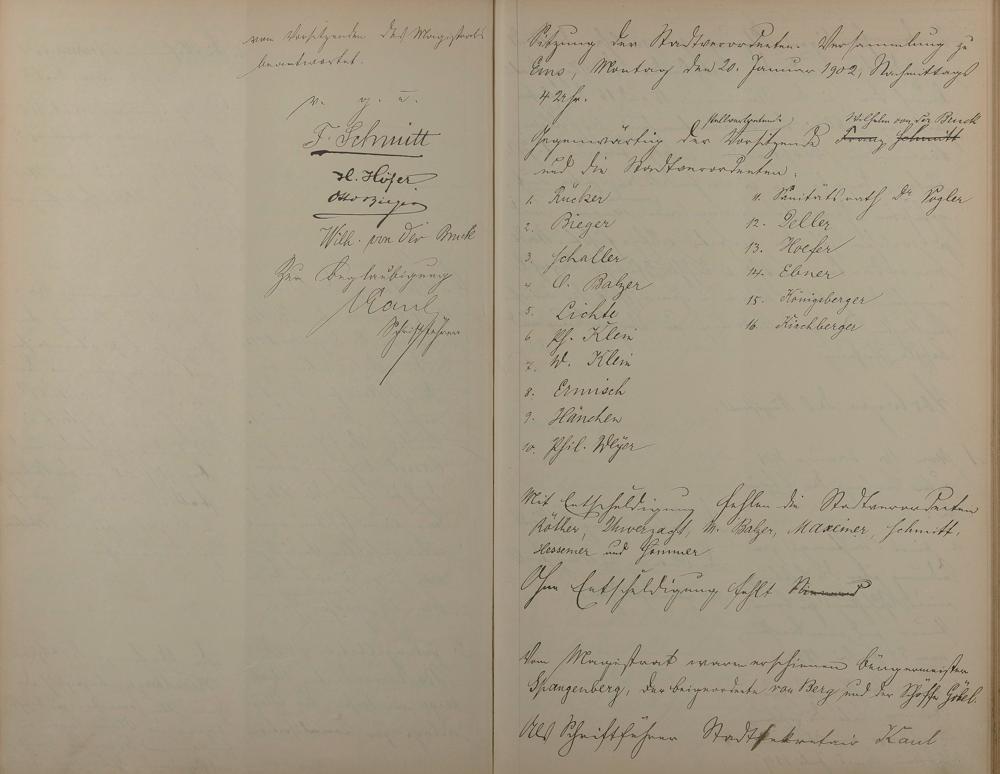 vom Vorsitzenden des Magistrats
beantwortet.
v. g. u.
F. Schmitt
H. Höfer
Otto Bieger
Wilh. von der Bruck
Zur Beglaubigung
Kaul
Schriftführer
Sitzung der Stadtverordneten-Versammlung zu
Ems, Montag den 20. Januar 1902, Nachmittags
4 Uhr.
stellvertretende Wilhelm von der Bruck
Gegenwärtig der Vorsitzende Franz Schmitt
und die Stadtverordneten:
1. Rücker
2. Bieger
3. Schaller
4. C. Balzer
5. Lichte
6. Ph. Klein
7. W. Klein
8. Ermisch
9. Hänchen
10. Phil. Weyer
11. Sanitätsrath Dr. Vogler
12. Deller
13. Hoefer
14. Ebner
15. Königsberger
16. Kirchberger
Mit Entschuldigung fehlen die Stadtverordneten
Röther, Unverzagt, M. Balzer, Maxeiner, Schmitt,
Hessemer und Sommer
Ohne Entschuldigung fehlt Niemand
Vom Magistrat waren erschienen Bürgermeister
Spangenberg, der beigeordnete von Berg und der Schöffe Göbel.
Als Schriftführer Stadtsekretair Kaul